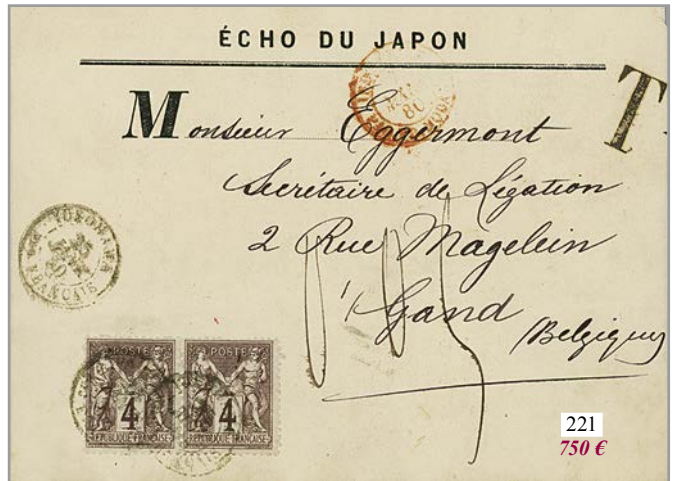 ÉCHO DU JAPON
Monsieur Eggermont
T
Secrétaire de Légation
2 Rue Magelein
Gand
(Belgique)
YOKOHAMA
POSTE
4
RÉPUBLIQUE FRANÇAISE
POSTE
4
RÉPUBLIQUE FRANÇAISE
221
750 €